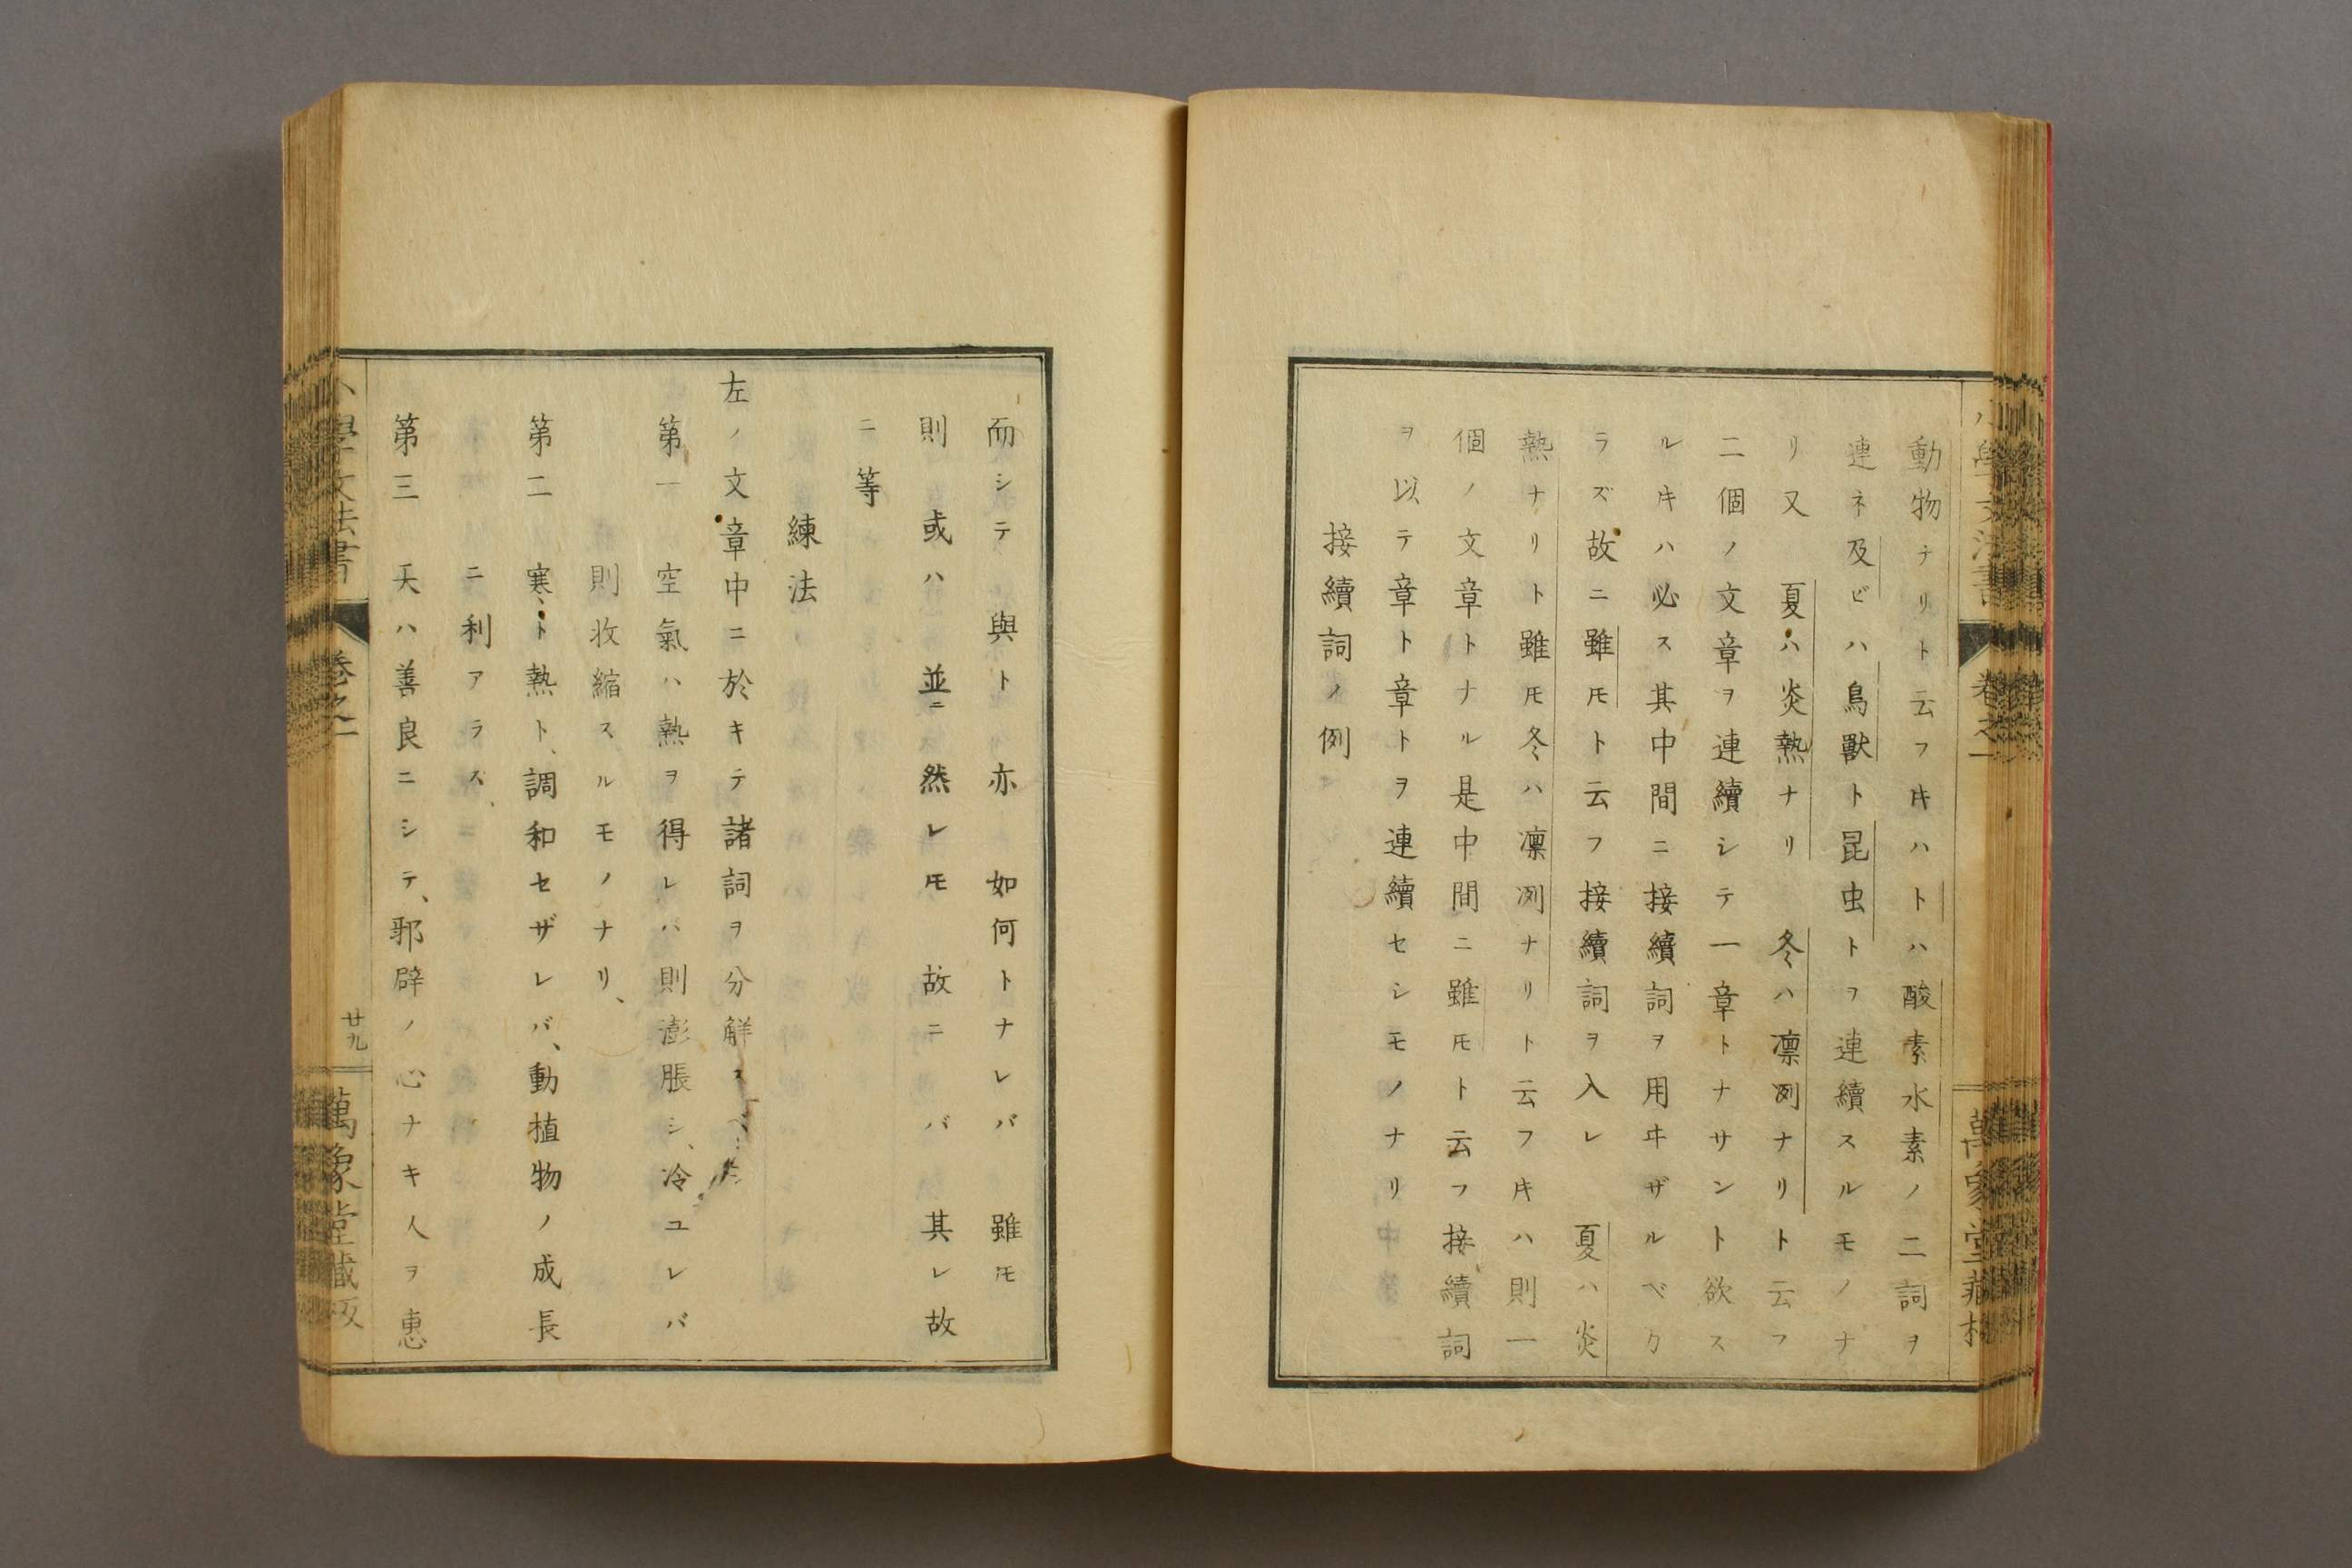 動物ナリト云フキハトハ酸素水素ノ二詞ヲ
連ネ及ビハ鳥獸ト昆虫トヲ連續スルモノナ
リ又　夏ハ炎熱ナリ　冬ハ凛冽ナリト云フ
二個ノ文章ヲ連續シテ一章トナサント欲ス
ルキハ必ス其中間ニ接續詞ヲ用ヰザルベカ
ラズ故ニ雖𪜈ト云フ接續詞ヲ入レ　夏ハ炎
熱ナリト雖𪜈冬ハ凛冽ナリト云フキハ則一
個ノ文章トナル是中間ニ雖𪜈ト云フ接續詞
ヲ以テ章ト章トヲ連續セシモノナリ
接續詞ノ例
小學文法書　卷之一　萬象堂藏板
而シテ　與ト　亦　如何トナレバ　雖𪜈
則　或ハ　並ニ　然レ𪜈　故ニ　バ　其レ故
ニ　等
練法
左ノ文章中ニ於キテ諸詞ヲ分解スベシ
第一　空氣ハ熱ヲ得レバ則澎脹シ、冷ユレバ
則收縮スルモノナリ、
第二　寒、ト熱ト、調和セザレバ、動植物ノ成長
ニ利アラス、
第三　天ハ善良ニシテ、邪辟ノ心ナキ人ヲ惠
小學文法書　卷之一　廿九　萬象堂藏板